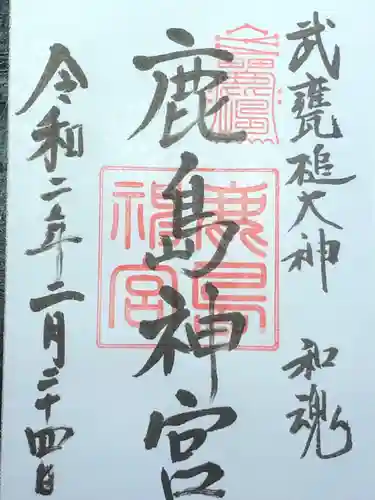 武甕槌大神 和魂
鹿島神宮
令和二年二月二十四日
鹿島
神宮